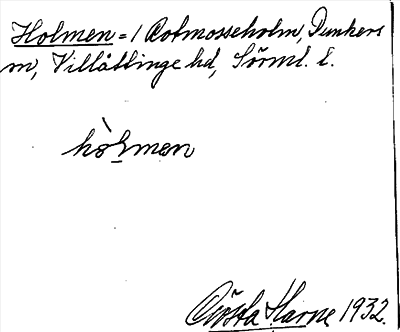 Holmen = / Rotmosseholm, Dunkers
sn, Villåttinge hd, Sörml. l.
hòlmen
Gösta Harne 1932.